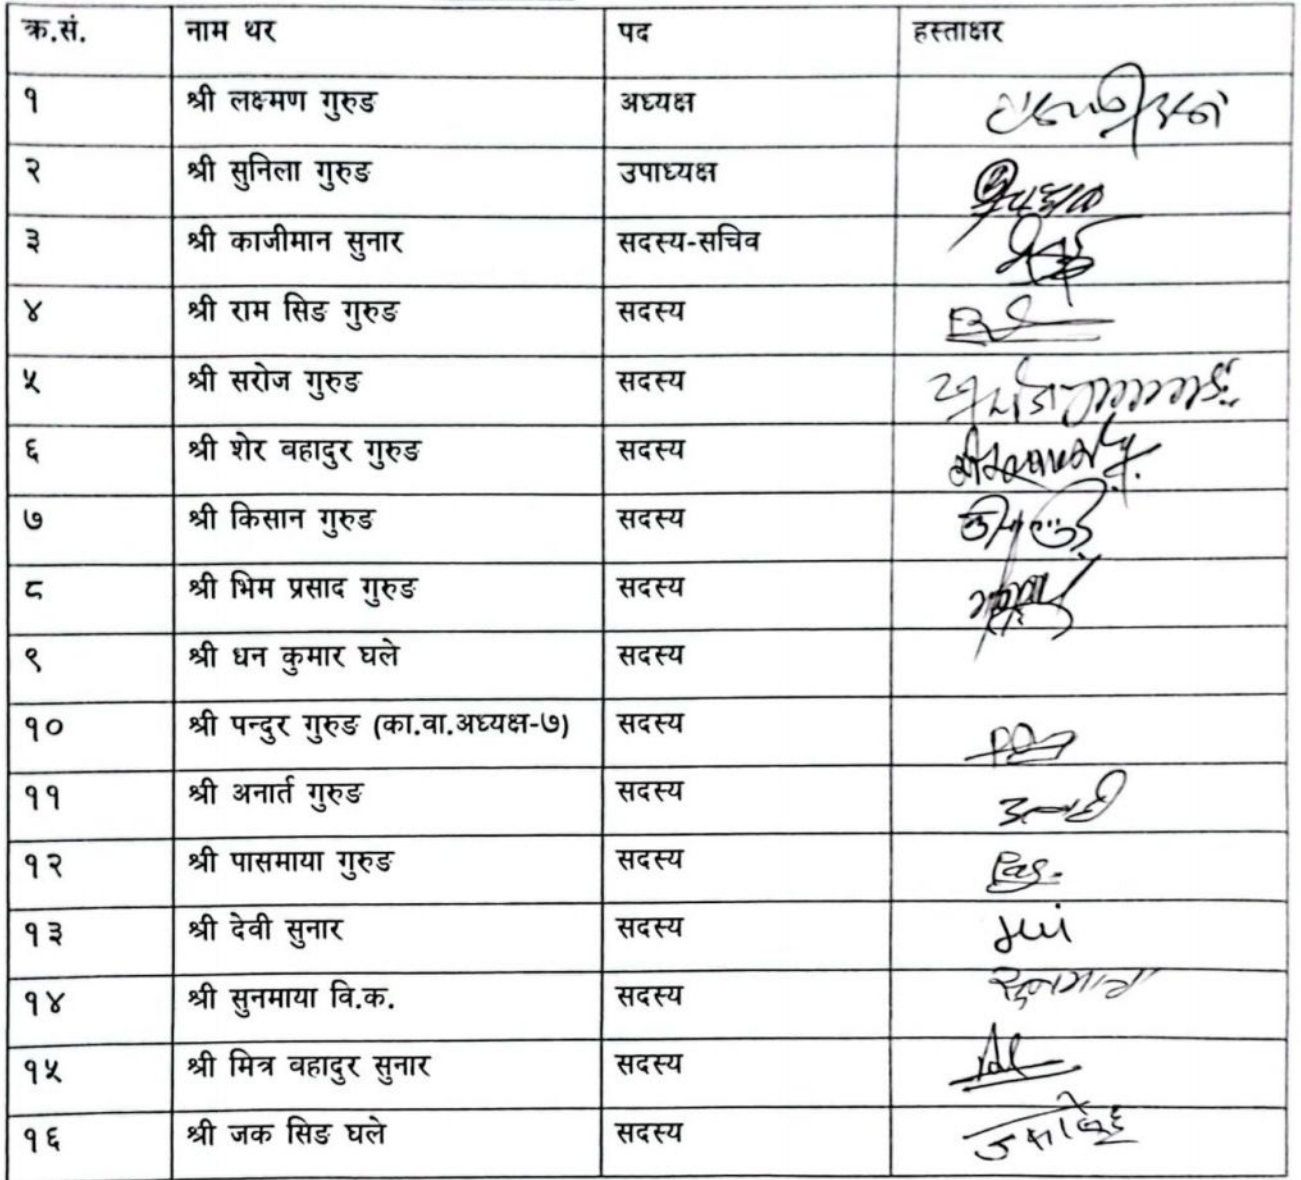 क्र.सं. नाम थर पद हस्ताक्षर
१ श्री लक्ष्मण गुरुङ अध्यक्ष
२ श्री सुनिला गुरुङ उपाध्यक्ष
३ श्री काजीमान सुनार सदस्य-सचिव
४ श्री राम सिङ गुरुङ सदस्य
५ श्री सरोज गुरुङ सदस्य
६ श्री शेर वहादुर गुरुङ सदस्य
७ श्री किसान गुरुङ सदस्य
८ श्री भिम प्रसाद गुरुङ सदस्य
९ श्री धन कुमार घले सदस्य
१० श्री पन्दुर गुरुङ (का.वा.अध्यक्ष-७) सदस्य
११ श्री अनार्त गुरुङ सदस्य
१२ श्री पासमाया गुरुङ सदस्य Pas.
१३ श्री देवी सुनार सदस्य
१४ श्री सुनमाया वि.क. सदस्य
१५ श्री मित्र वहादुर सुनार सदस्य
१६ श्री जक सिङ घले सदस्य